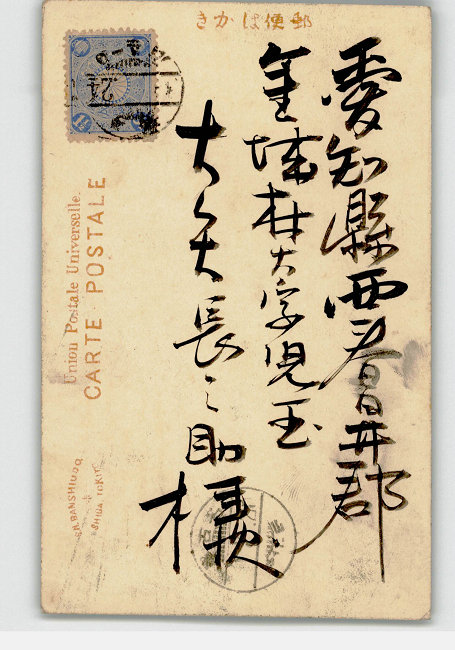 郵便はかき
愛知縣西春日井郡
金城村大字児玉
大矢長之助様
Union Postale Universelle.
CARTE POSTALE
BANSHIUDO